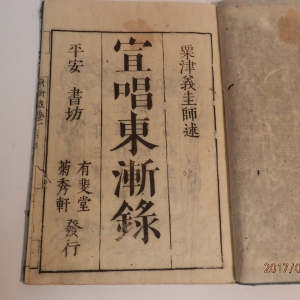 粟津義圭師述
宣唱東漸錄
平安 書坊
有斐堂
菊秀軒
發行
2017/0